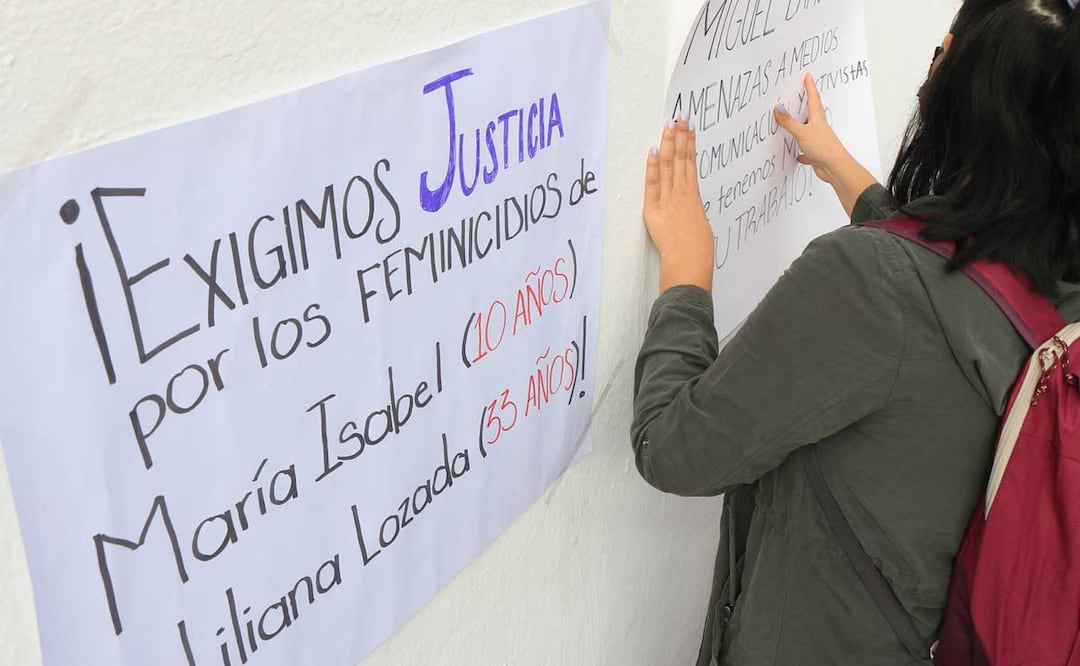 ¡EXIGIMOS JUSTICIA
por los FEMINICIDIOS de
María Isabel (10 AÑOS)
Liliana Lozada (33 AÑOS)!
MIGUEL
AMENAZAS A MEDIOS
COMUNICACIÓN Y ACTIVISTAS
tenemos
TRABAJO!